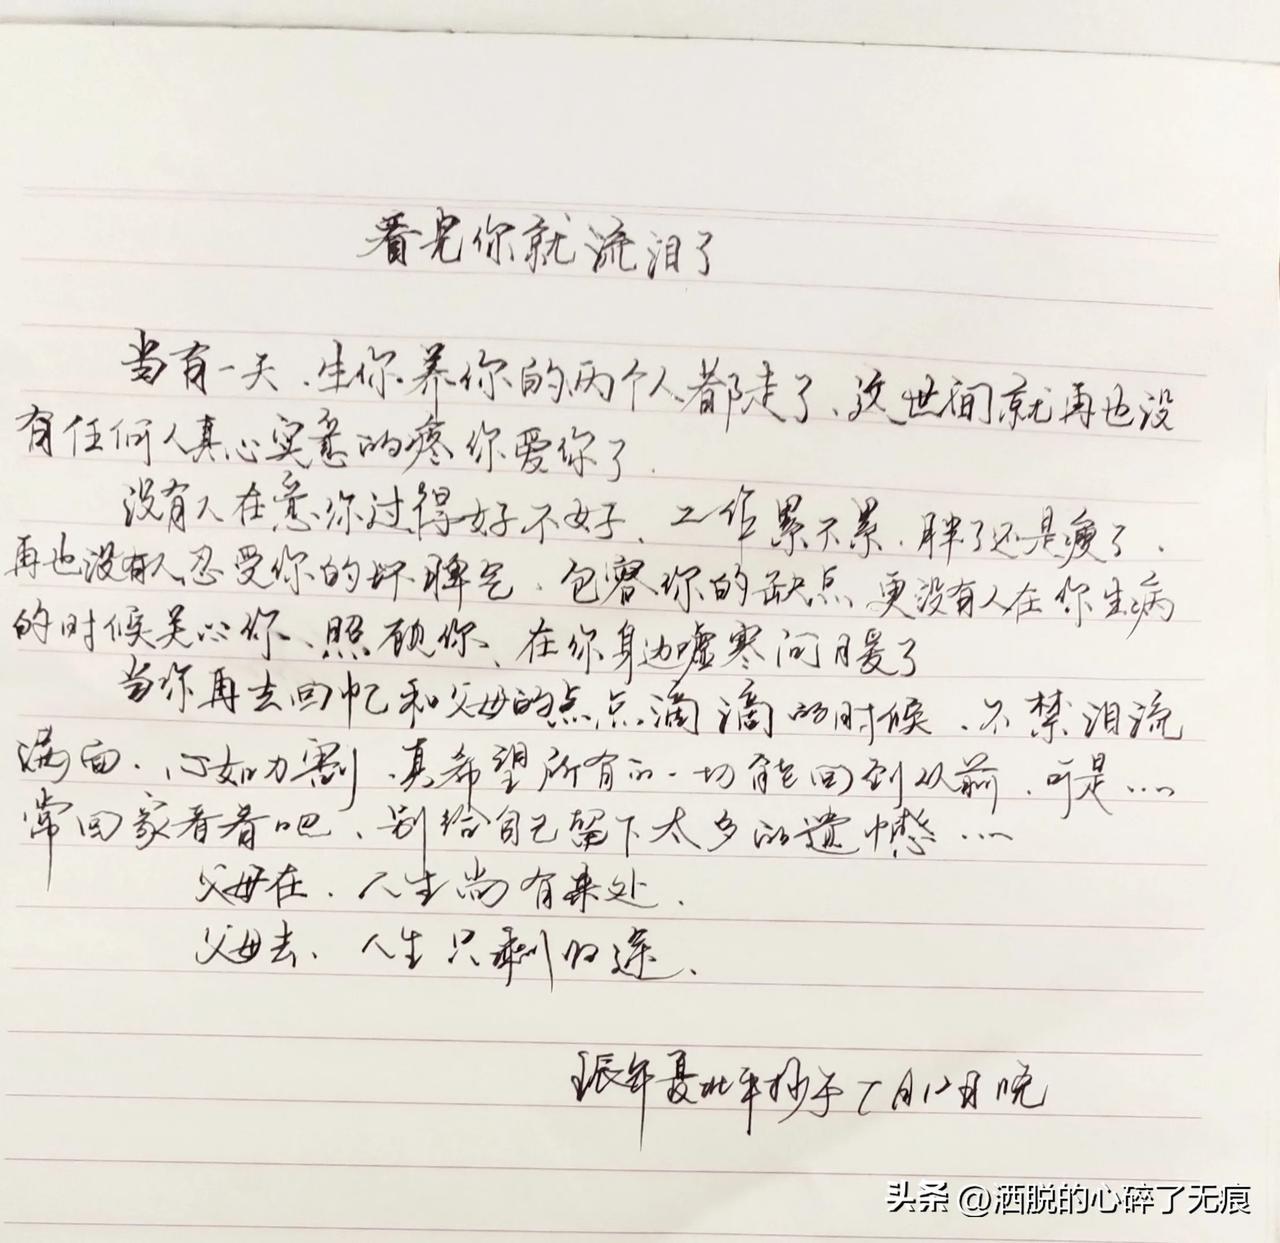 看完你就流泪了
当有一天、生你养你的两个人都走了、这世间就再也没
有任何人真心实意的疼你爱你了.
没有人在意你过得好不好、工作累不累、胖了还是瘦了、
再也没有人忍受你的坏脾气、包容你的缺点 更没有人在你生病
的时候关心你、照顾你、在你身边嘘寒问暖了
当你再去回忆和父母的点点滴滴的时候、不禁泪流
满面、心如刀割、真希望所有的一切能回到从前、可是……
常回家看看吧、别给自己留下太多的遗憾……
父母在、人生尚有来处、
父母去、人生只剩归途、
年夏 抄于7月12日晚
头条 @洒脱的心碎了无痕